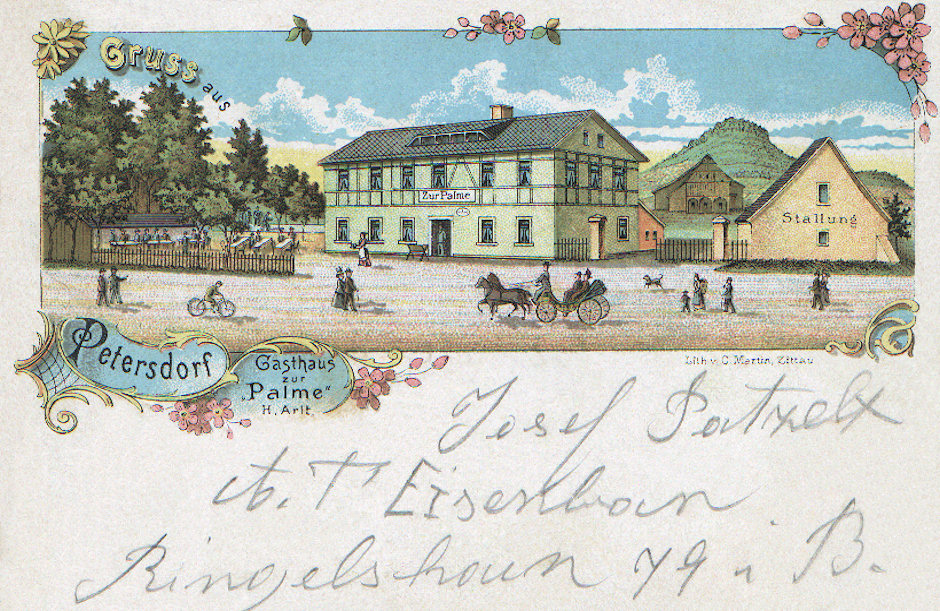 Gruss aus
Zur Palme
Stallung
Petersdorf
Gasthaus
zur
„Palme“
H. Arlt.
Lith. v. C. Martin, Zittau
Josef Patzelt
Eisenban
Ringelshain 79 i B.